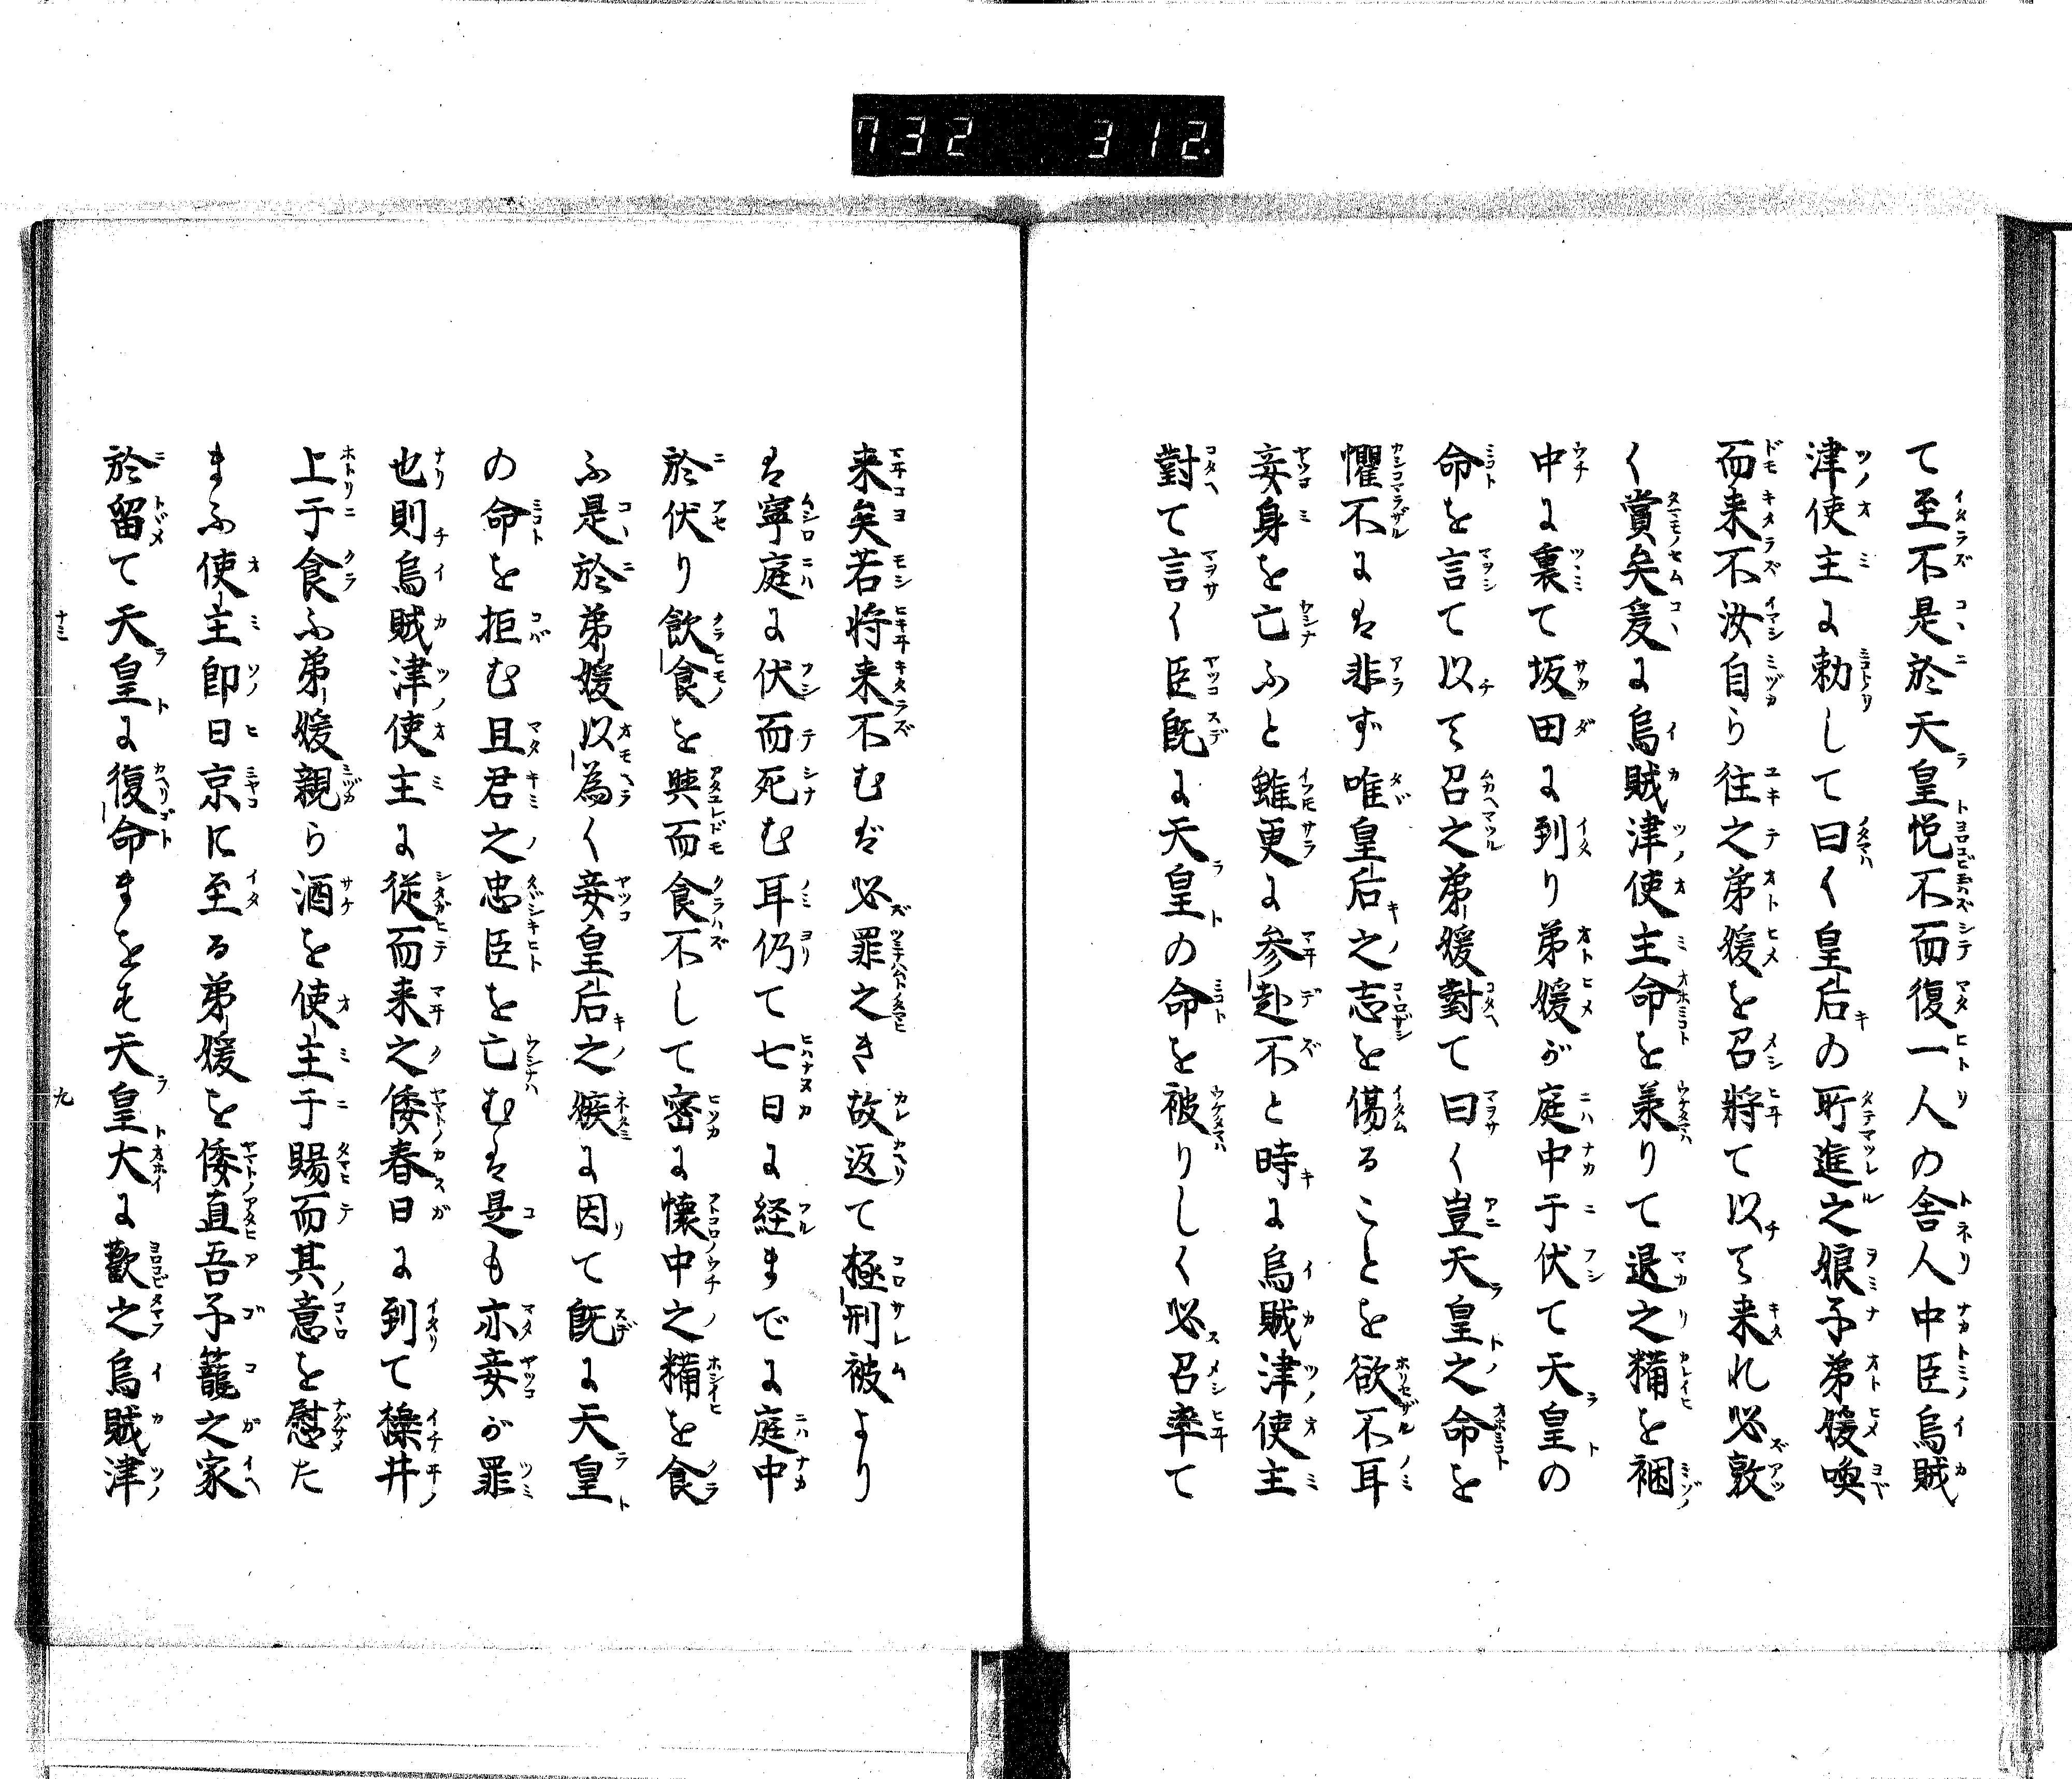 732 312.
て至不是於天皇悦不而復一人の舎人中臣烏賊
津使主に勅して曰く皇后の所進之娘子弟媛喚
而来不汝自ら往之弟媛を召将て以て来れ必敦
く賞矣爰に烏賊津使主命を羕りて退之糒を裀
中に裹て坂田に到り弟媛が庭中于伏て天皇の
命を言て以て召之弟媛對て曰く豈天皇之命を
懼不には非ず唯皇后之志を傷ることを欲不耳
妾身を亡ふと雖更に参赴不と時に烏賊津使主
對て言く臣既に天皇の命を被りしく必召率て
来矣若将来不むば必罪之き故返て極刑被より
は寧庭に伏而死む耳仍て七日に経までに庭中
於伏り飲食を與而食不して密に懐中之糒を食
ふ是於弟媛以為く妾皇后之嫉に因て既に天皇
の命を拒む且君之忠臣を亡むは是も亦妾が罪
也則烏賊津使主に従而来之倭春日に到て檪井
上于食ふ弟媛親ら酒を使主于賜而其意を慰た
まふ使主即日京に至る弟媛を倭直吾子籠之家
於留て天皇に復命まをす天皇大に歡之烏賊津
十三
九